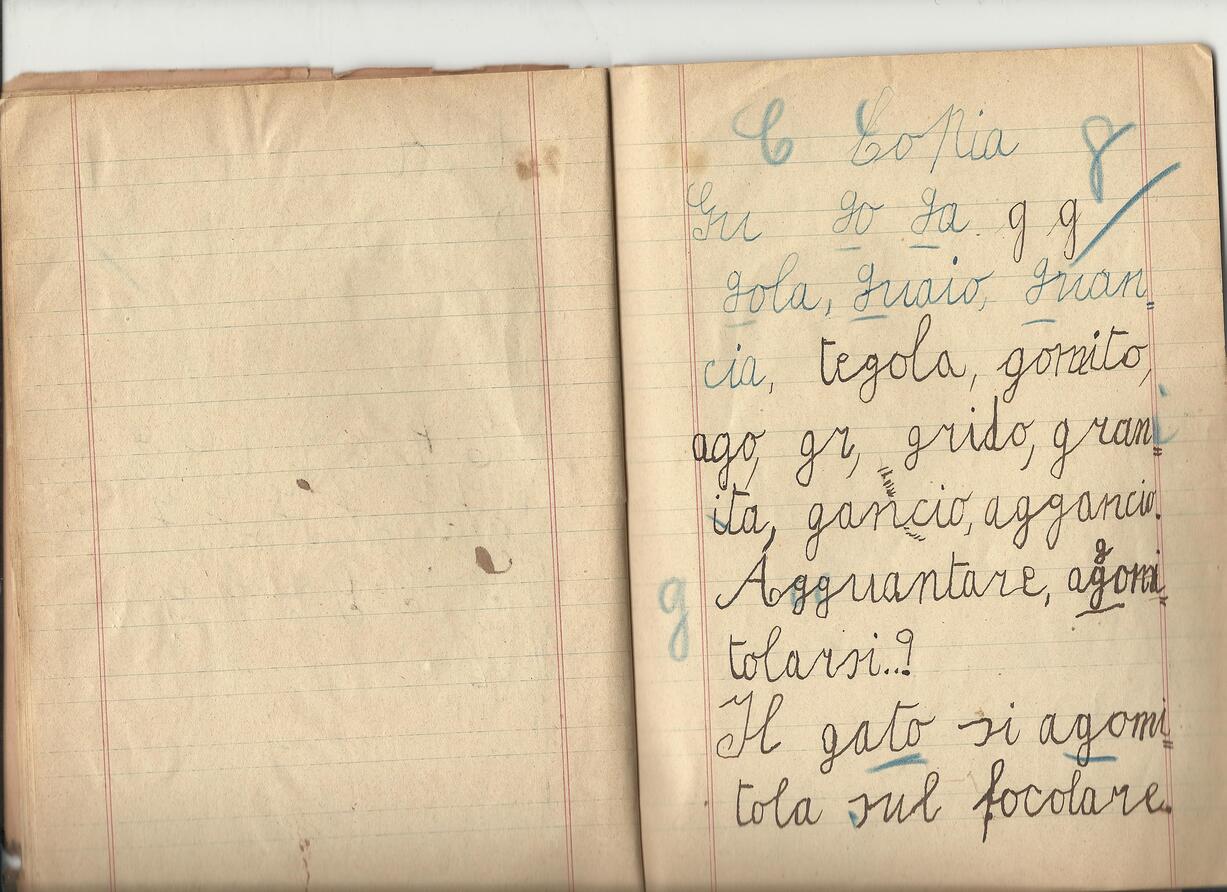 C Copia 8
Gu go ga g g
gola, guaio, guan=
cia, tegola, gomito,
ago, gr, grido, gran= i
ita, gancio, aggancio.
g Agguantare, aggomi=
tolarsi..?
Il gato si agomi=
tola sul focolare.